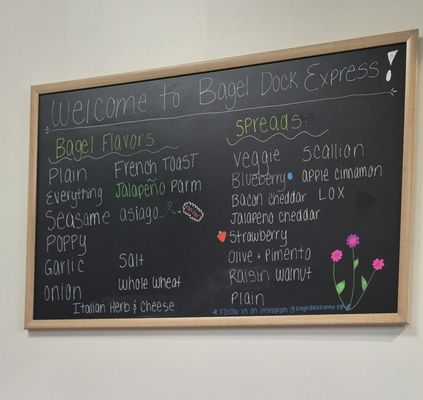 Welcome to Bagel Dock Express!
Bagel Flavors
Plain French Toast
Everything Jalapeño Parm
Seasame asiago
Poppy
Garlic Salt
onion Whole Wheat
Italian Herb & Cheese
Spreads:
Veggie Scallion
Blueberry apple cinnamon
Bacon cheddar LOX
Jalapeno cheddar
Strawberry
Olive + Pimento
Raisin walnut
Plain
Follow us on instagram